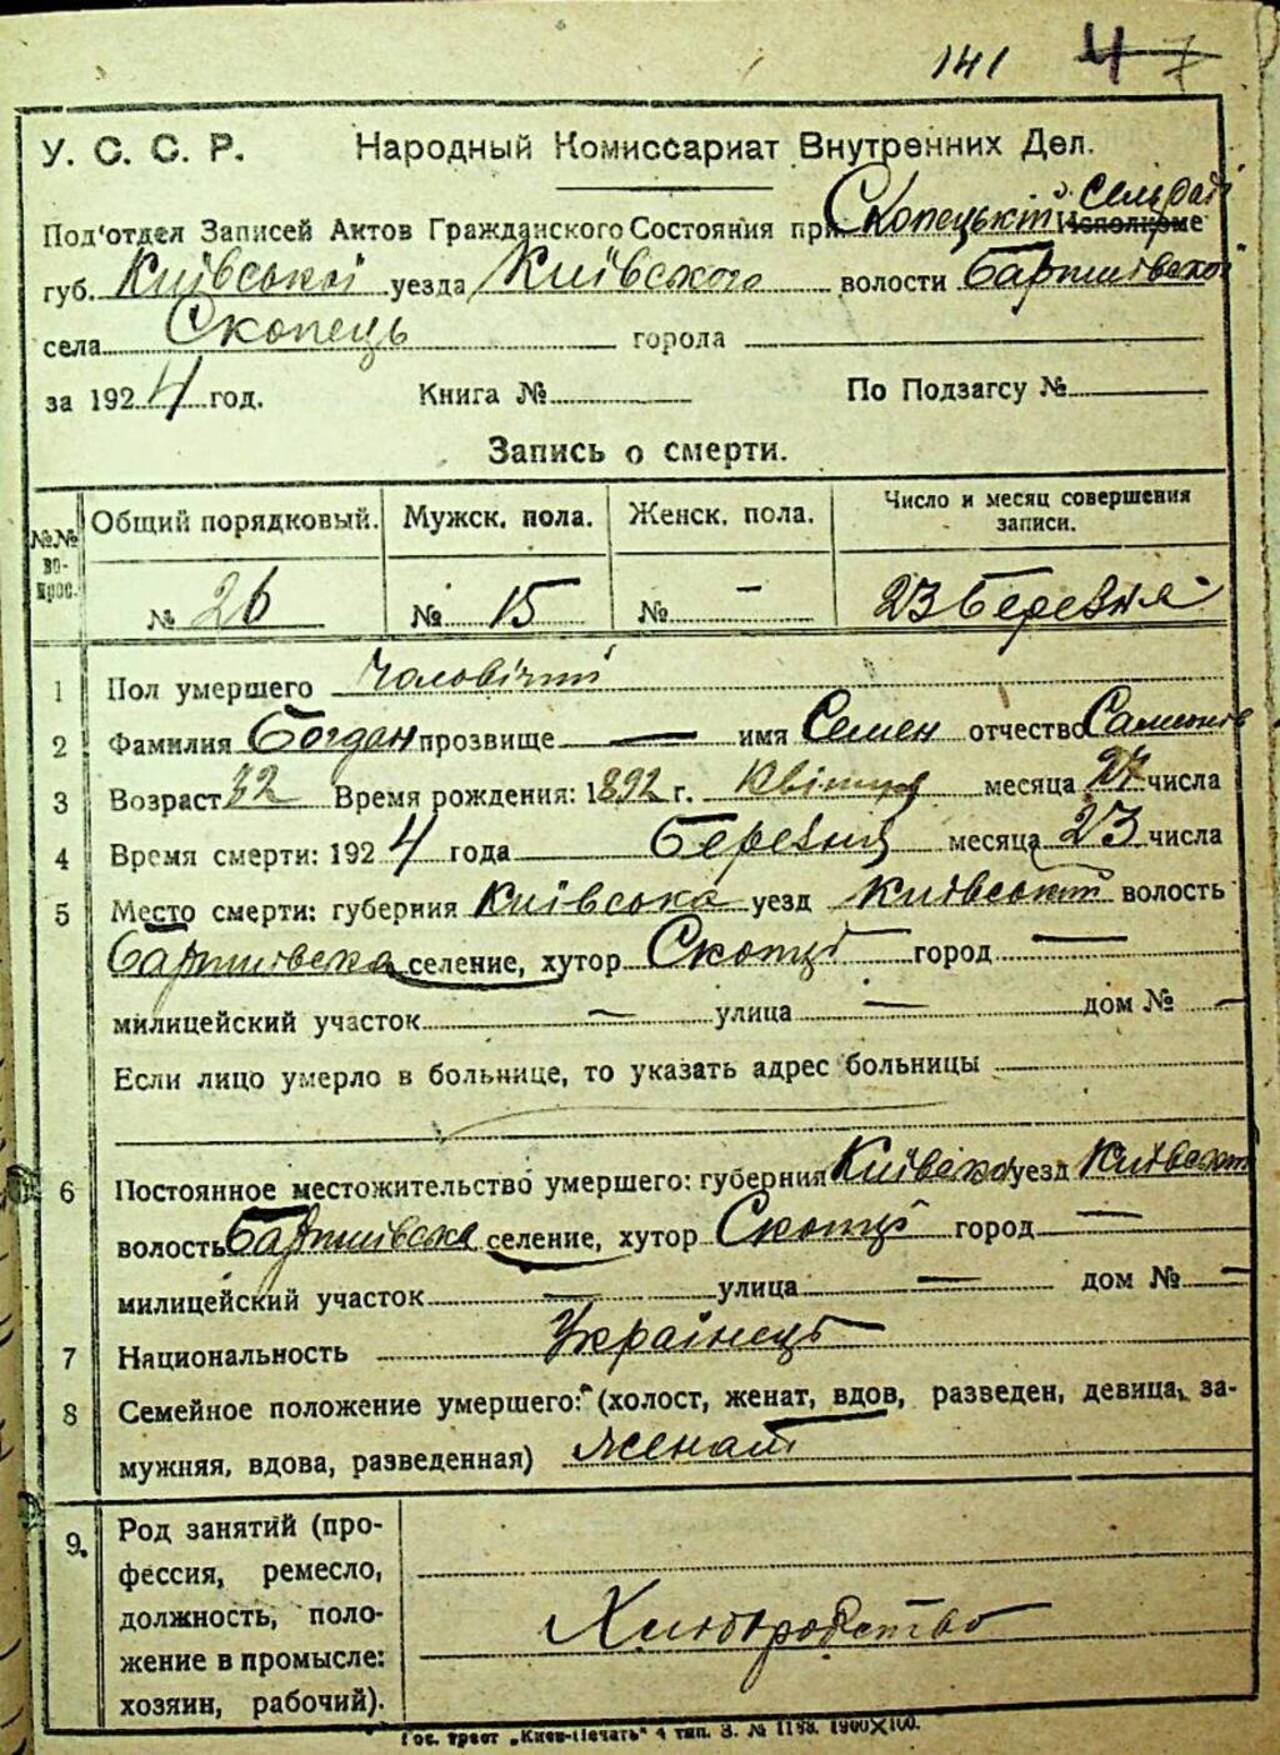 141 4 7
У. С. С. Р. Народный Комиссариат Внутренних Дел.
Под'отдел Записей Актов Гражданского Состояния при Скопецькій Сельраді Исполкоме
губ. Київської уезда Київского волости Баришівскої
села Скопець города
за 1924 год. Книга № По Подзагсу №
Запись о смерти.
№№ во-прос. Общий порядковый. Мужск. пола. Женск. пола. Число и месяц совершения записи.
№ 26 № 15 № — 23 березня
1 Пол умершего Чоловічий
2 Фамилия Богдан прозвище — имя Семен отчество
3 Возраст 32 Время рождения: 1892 г. Квітня месяца 24 числа
4 Время смерти: 1924 года Березня месяца 23 числа
5 Место смерти: губерния Київська уезд Київський волость
Баришівська селение, хутор Скопці город —
милицейский участок — улица — дом № —
Если лицо умерло в больнице, то указать адрес больницы
6 Постоянное местожительство умершего: губерния Київська уезд Київський
волость Баришівська селение, хутор Скопці город —
милицейский участок — улица — дом № —
7 Национальность Українець
8 Семейное положение умершего: (холост, женат, вдов, разведен, девица, за-
мужняя, вдова, разведенная) женат
9. Род занятий (про-
фессия, ремесло,
должность, поло-
жение в промысле:
хозяин, рабочий).
Хліборобство
Гос. трест „Киев-Печать" 4 тип. З. № 1198. 1900X100.